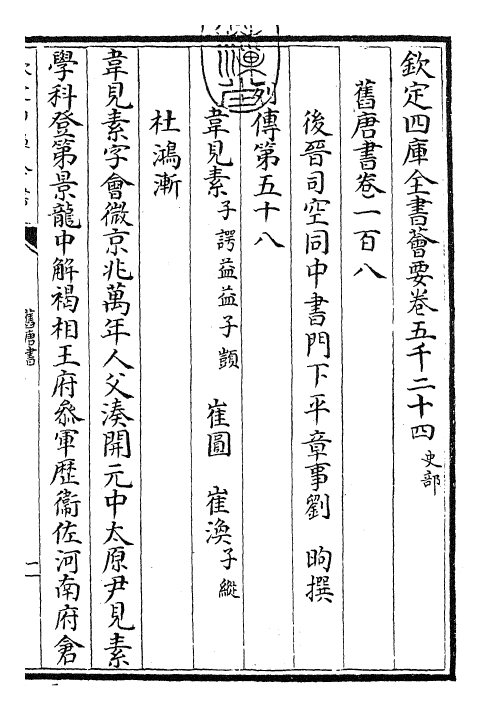 欽定四庫全書薈要卷五千二十四 史部
舊唐書卷一百八
後晉司空同中書門下平章事劉 昫撰
列傳第五十八
韋見素 子諤益益子顗 崔圓 崔渙 子縱
杜鴻漸
韋見素字會微京兆萬年人父湊開元中太原尹見素
學科登第景龍中解褐相王府叅軍歴衞佐河南府倉
舊唐書
一